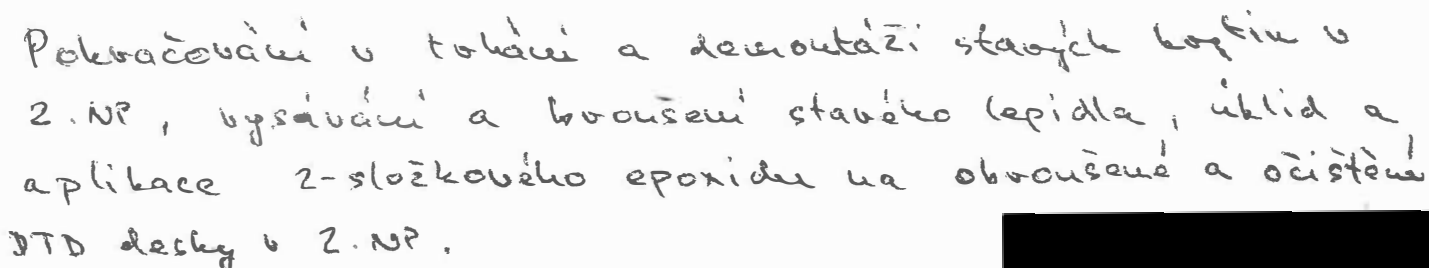 Pokračování v trhání a demontáži starých krytin v
2.NP, vysávání a broušení starého lepidla, úklid a
aplikace 2-složkového epoxidu na obroušené a očištěné
DTD desky v 2.NP.